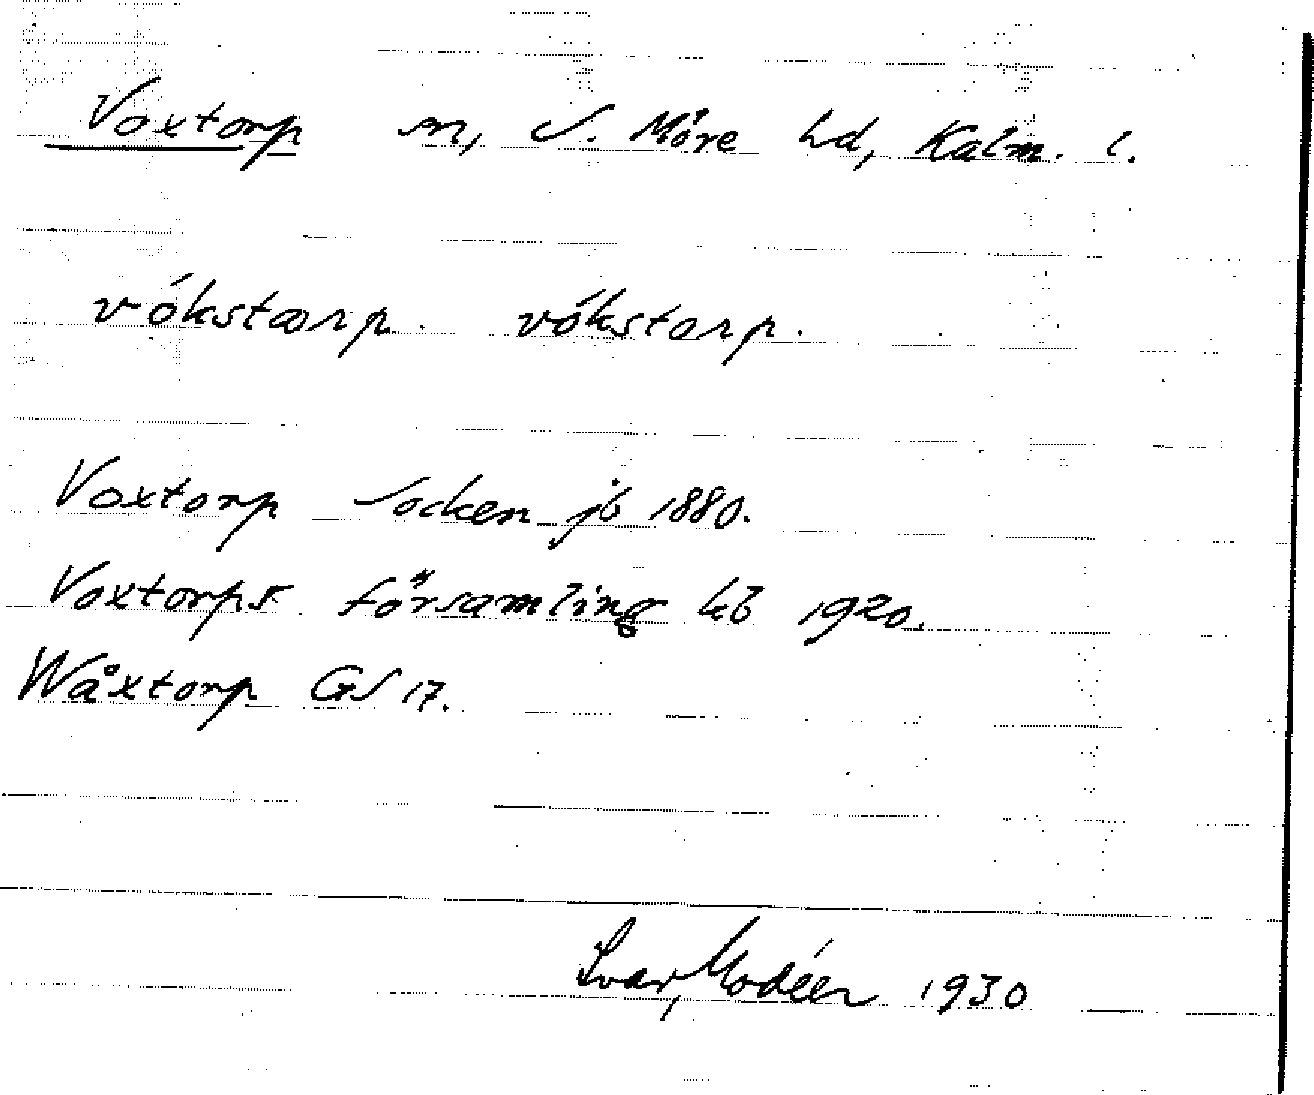 Voxtorp sn, S. Möre hd, Kalm. l.
vókstærp. vókstorp.
Voxtorp Socken jb 1880.
Voxtorps församling kb 1920.
Wåxtorp GS 17.
Ivar Modéer 1930